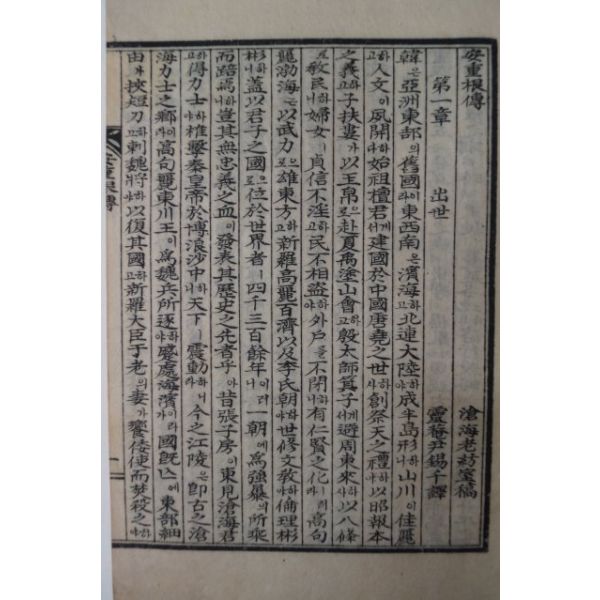 安重根傳 滄海老紡室稿
第一章 出世 靈菴尹錫千譯
韓은亞洲東部의舊國이라東西南은濱海하고北連大陸하야成半島形하니山川이佳麗
하고人文이夙開라始祖檀君께서建國於中國唐堯之世하사創祭天之禮하야以昭報本
之義하고子扶婁가以玉帛으로赴夏禹塗山會하고殷太師箕子께서避周東來하사以八條
로敎民하니婦女ㅣ貞信不淫하고民不相盜하야外戶를不閉하니有仁賢之化러라高句
麗渤海는以武力으로雄東方하고新羅高麗百濟以及李氏朝하야世修文敎하야倫理彬
彬하니蓋以君子之國으로位於世界者ㅣ四千三百餘年이러니一朝에爲強暴의所乘
而踣焉하니豈其無忠義之血이發表其歷史之光者乎아昔張子房이東見滄海君
하고得力士하야椎擊秦皇帝於博浪沙中하니天下ㅣ震動하니今之江陵은卽古之滄
海力士之鄕이라高句麗東川王이爲魏兵所逐하야蹙處海濱이라國旣亡에東部紐
由가挾短刀하고刺魏將하야以復其國하고新羅大臣于老의妻가饗倭使而焚殺之하야
安重根傳
一